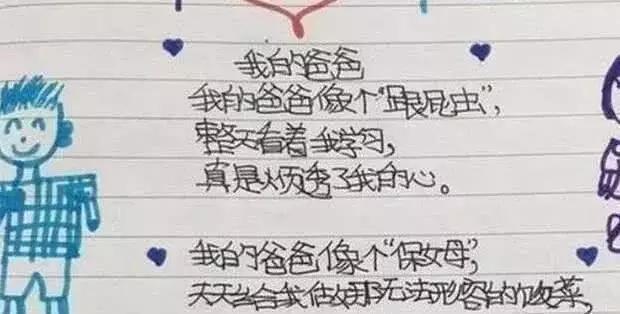 我的爸爸
我的爸爸像个“跟屁虫”,
整天看着我学习,
真是烦透了我的心。
我的爸爸像个“保姆”,
天天给我做那无法形容的饭菜,